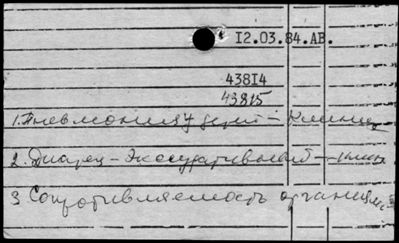 12.03.84.АВ.
43814
43815
1. Пневмония у детей – Клиника
2. Диатез – Экссудативный –
3 Сопротивляемость организма